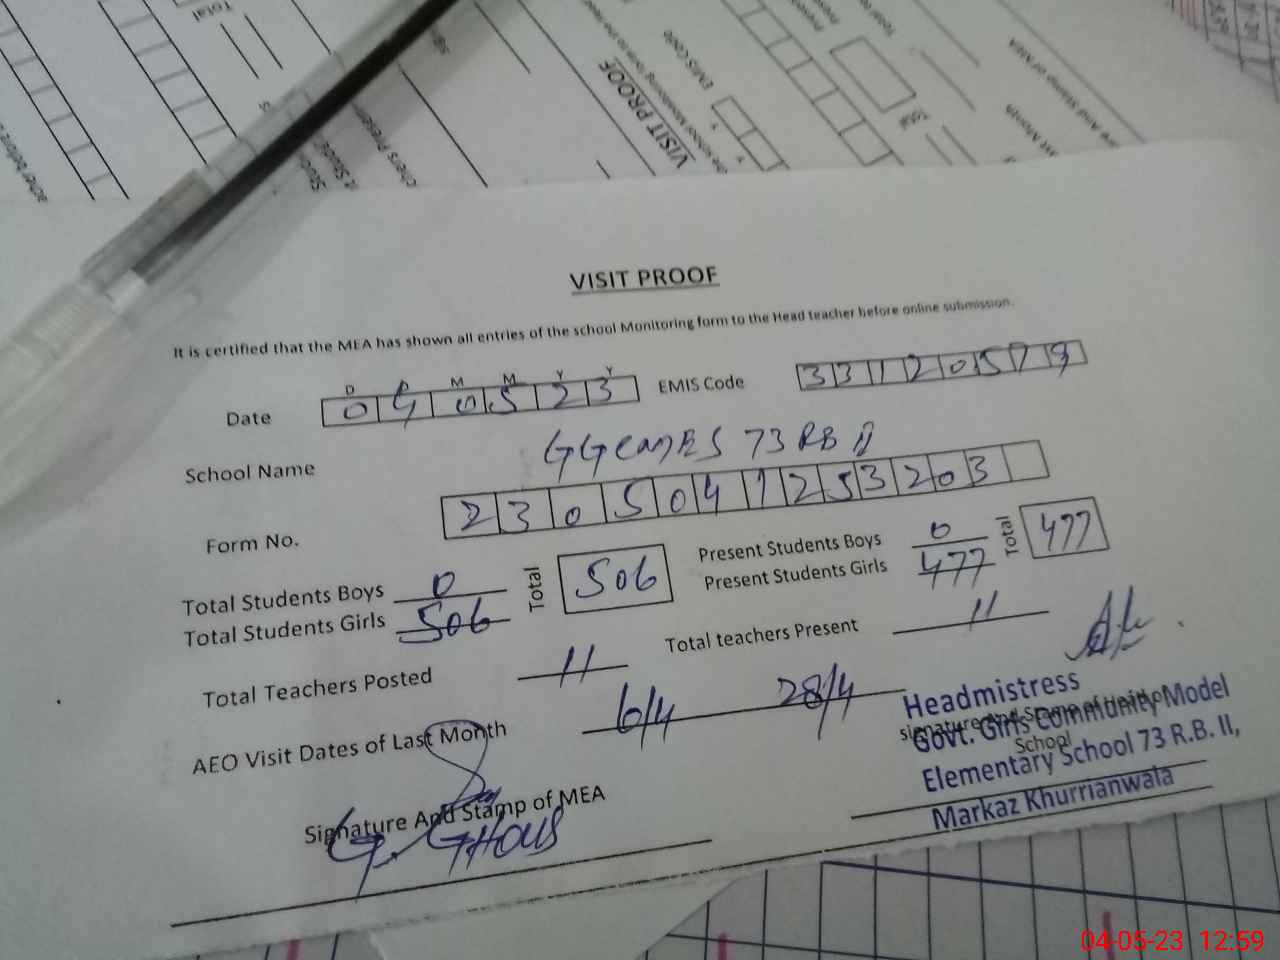 Total
VISIT PROOF
EMIS Code
VISIT PROOF
It is certified that the MEA has shown all entries of the school Monitoring form to the Head teacher before online submission.
D D M M Y Y
Date 0 4 0 5 2 3 EMIS Code 3 3 1 2 0 5 7 9
School Name GGCMES 73 RB II
Form No. 2 3 0 5 0 4 1 2 5 3 2 0 3
Total Students Boys 0 Total 506 Present Students Boys 0 Total 477
Total Students Girls 506 Present Students Girls 477
Total Teachers Posted 11 Total teachers Present 11
AEO Visit Dates of Last Month 6/4 28/4
Headmistress
Signature And Stamp of
School
Govt. Girls Community Model
Elementary School 73 R.B. II,
Markaz Khurrianwala
Signature And Stamp of MEA
G. GHOUS
04-05-23 12:59